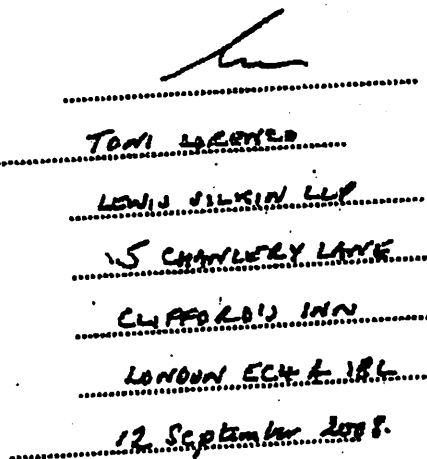 TONI LORENZO
LEWIS SILKIN LLP
5 CHANCERY LANE
CLIFFORD'S INN
LONDON EC4A 1BL
12 September 2008.